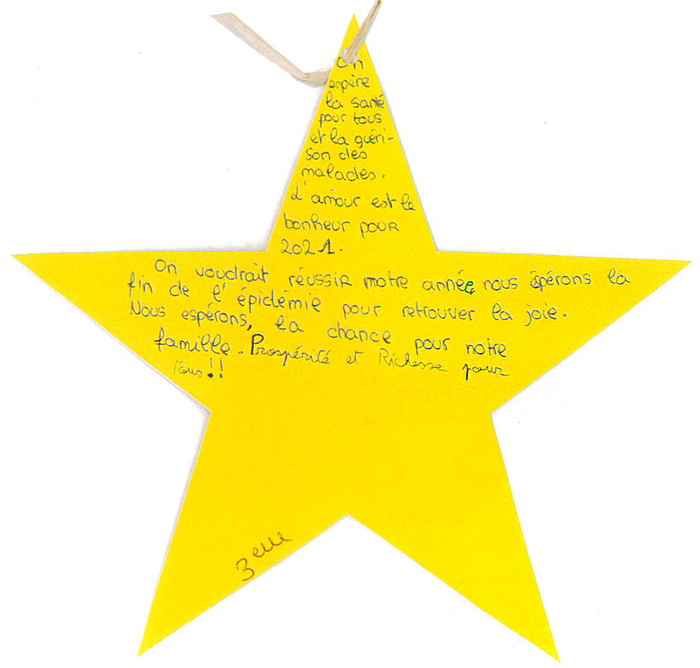 On
espère
la santé
pour tous
et la guéri-
son des
malades.
L'amour est le
bonheur pour
2021.
On voudrait réussir notre année, nous éspérons la
fin de l'épidémie pour retrouver la joie.
Nous espérons, la chance pour notre
famille. Prospérité et Richesse pour
Tous!!
3eme